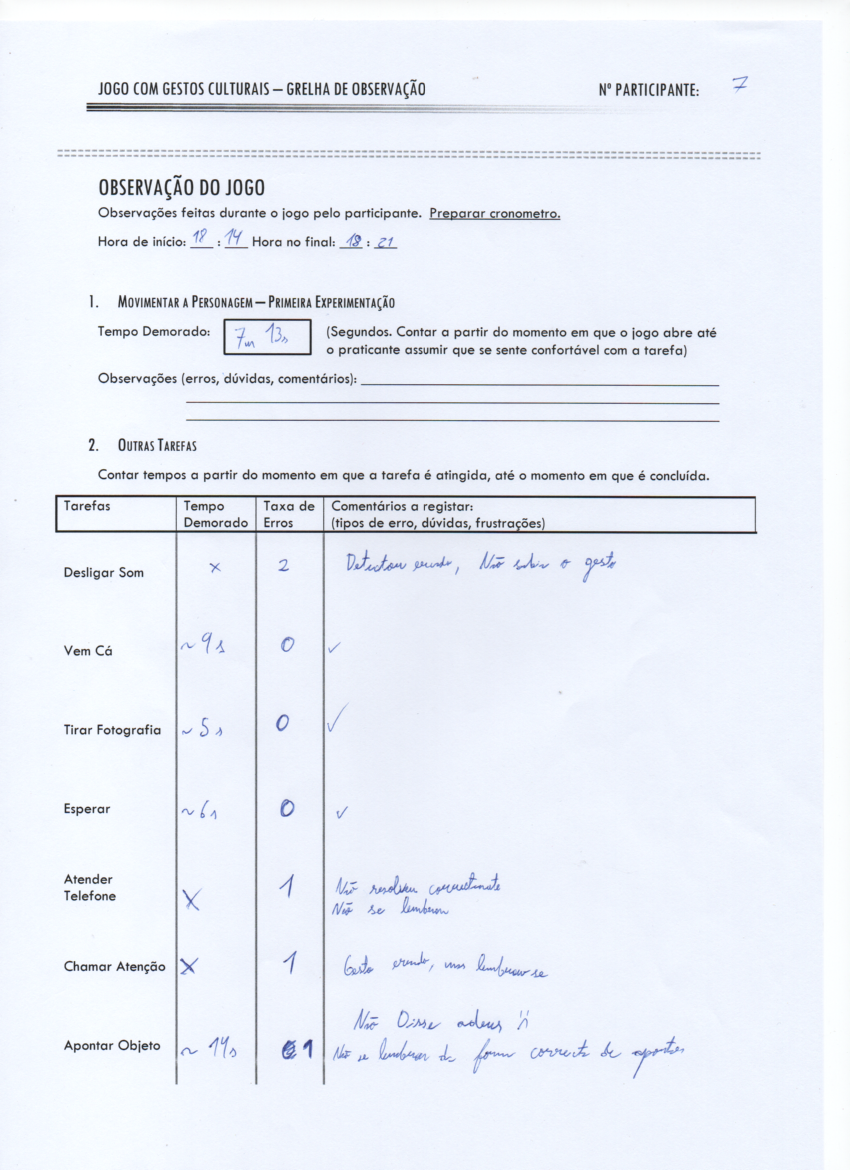 JOGO COM GESTOS CULTURAIS – GRELHA DE OBSERVAÇÃO Nº PARTICIPANTE: 7
OBSERVAÇÃO DO JOGO
Observações feitas durante o jogo pelo participante. Preparar cronometro.
Hora de início: 18 : 14 Hora no final: 18 : 21
1. MOVIMENTAR A PERSONAGEM – PRIMEIRA EXPERIMENTAÇÃO
Tempo Demorado: 7m 13s (Segundos. Contar a partir do momento em que o jogo abre até
o praticante assumir que se sente confortável com a tarefa)
Observações (erros, dúvidas, comentários):
2. OUTRAS TAREFAS
Contar tempos a partir do momento em que a tarefa é atingida, até o momento em que é concluída.
Tarefas Tempo Taxa de Comentários a registar:
Demorado Erros (tipos de erro, dúvidas, frustrações)
Desligar Som x 2 Detectou errado, Não sabia o gesto
Vem Cá ~ 9s 0 ✓
Tirar Fotografia ~ 5s 0 ✓
Esperar ~ 6s 0 ✓
Atender 1 Não resolveu
Telefone X Não se lembrou
Chamar Atenção X 1 Gesto errado, mas lembrou-se
Não Disse adeus
Apontar Objeto ~ 14s 1 Não se lembrou da forma correcta de apontar